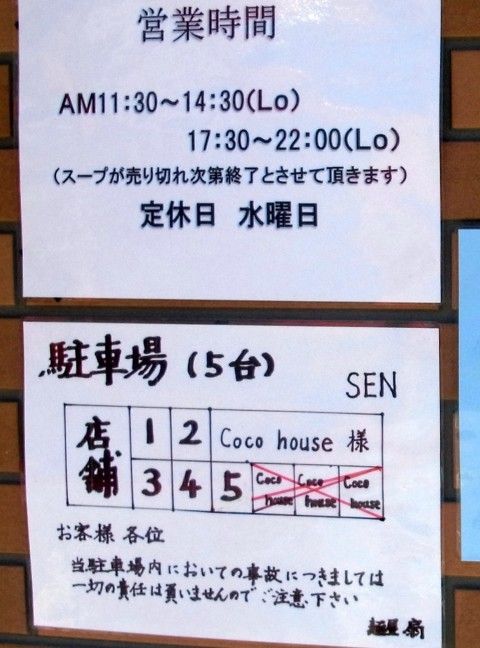 営業時間
AM11:30〜14:30(Lo)
17:30〜22:00(Lo)
(スープが売り切れ次第終了とさせて頂きます)
定休日 水曜日
駐車場(5台)
SEN
店舗 1 2 Coco house 様
3 4 5 Coco house Coco house Coco house
お客様 各位
当駐車場内においての事故につきましては
一切の責任は買いませんのでご注意下さい
麺屋 扇